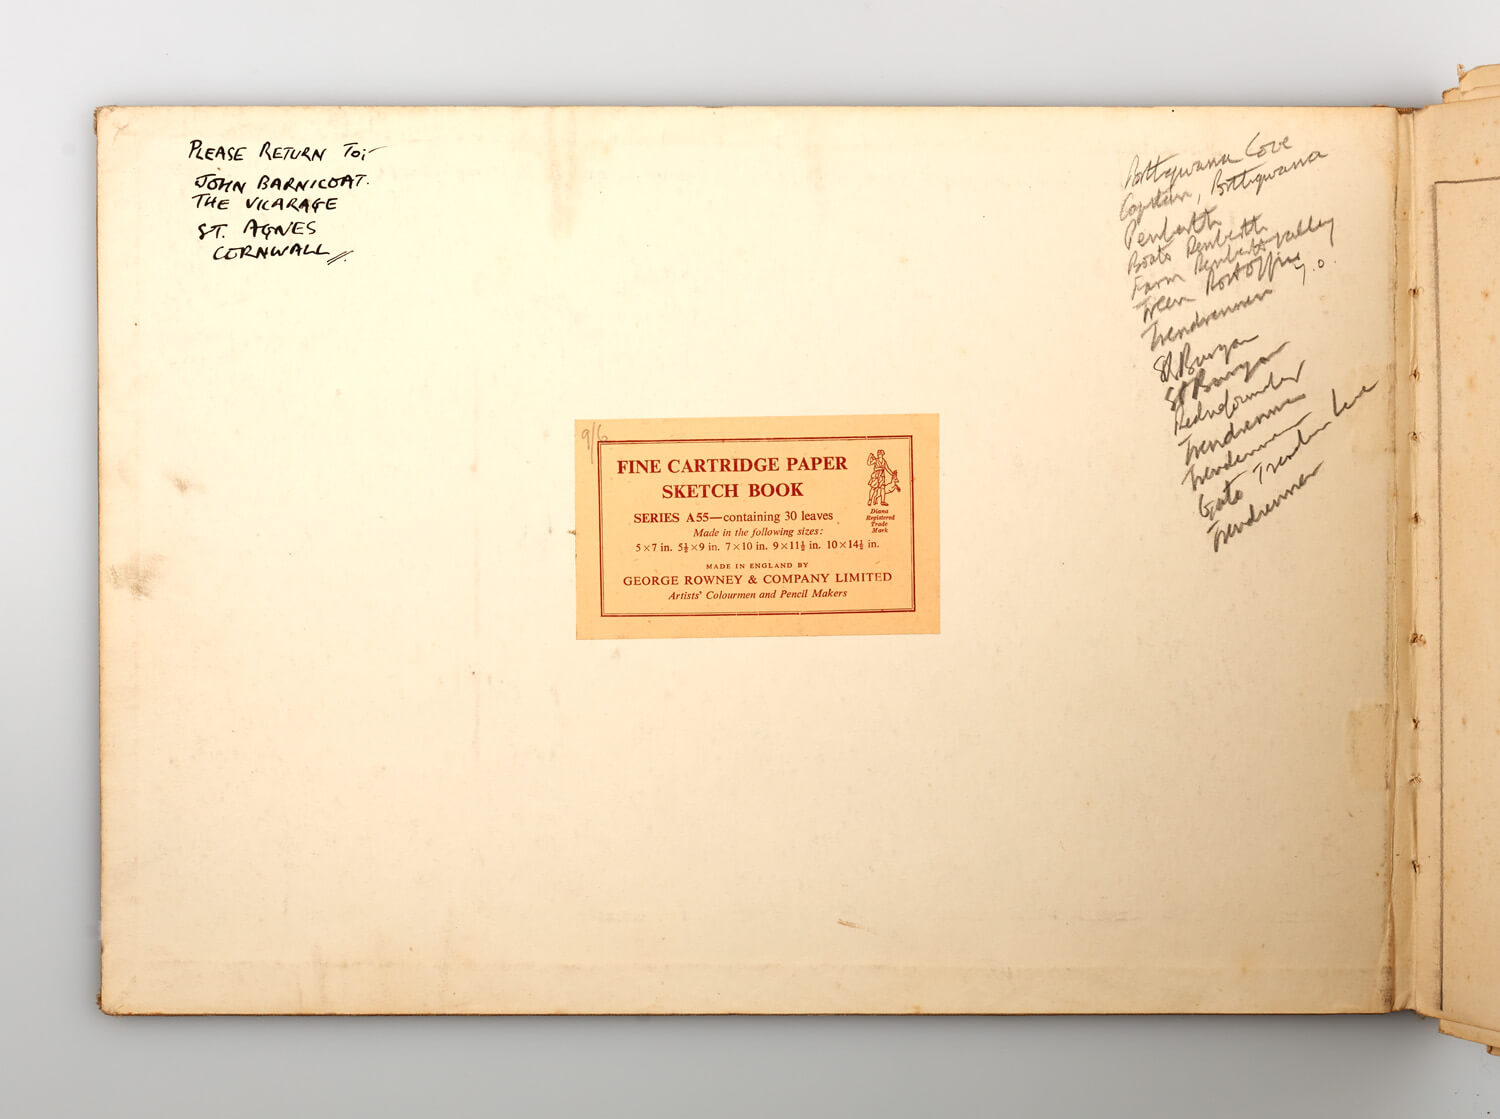 PLEASE RETURN TO:-
JOHN BARNICOAT.
THE VICARAGE
ST. AGNES
CORNWALL
9/6
FINE CARTRIDGE PAPER
SKETCH BOOK
SERIES A55—containing 30 leaves
Made in the following sizes:
5×7 in. 5½×9 in. 7×10 in. 9×11½ in. 10×14½ in.
MADE IN ENGLAND BY
GEORGE ROWNEY & COMPANY LIMITED
Artists' Colourmen and Pencil Makers
Diana
Registered
Trade
Mark
Porthgwarra Cove
Porthgwarra
Penberth
Boats Penberth
Farm Penberth Valley
Treen Post Office
Trendrennen
St Buryan
St Buryan
Trendrennen
Trendrennen
Gate
Trendrennen